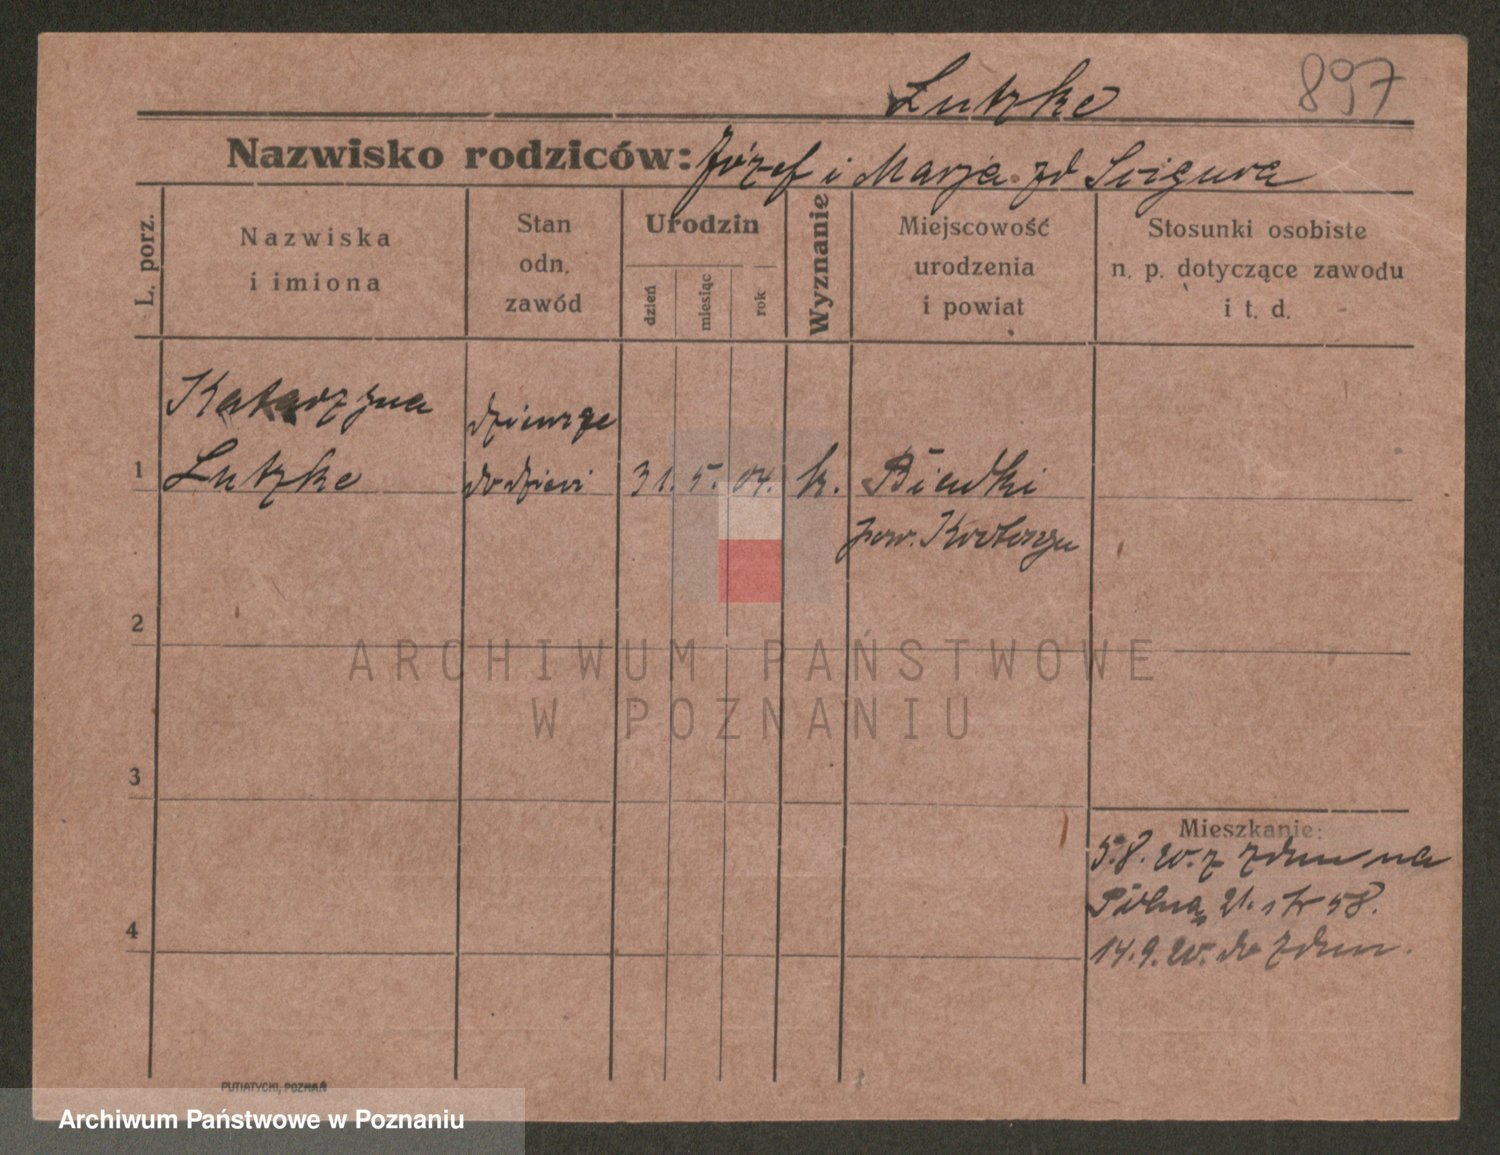 Lutzke
897
Nazwisko rodziców: Józef i Marja zd Ścigura
L. porz.
Nazwiska
i imiona
Stan
odn.
zawód
Urodzin
dzień
miesiąc
rok
Wyznanie
Miejscowość
urodzenia
i powiat
Stosunki osobiste
n. p. dotyczące zawodu
i t. d.
Katarzyna
Lutzke
do dzieci
1
31. 5. 04. k.
Biadki
pow. Krotoszyn
2
3
4
Mieszkanie:
5.8.20. z Zdun na
Polną 21. 58.
14.9.20. do Zdun.
PUTIATYCKI, POZNAŃ
ARCHIWUM PAŃSTWOWE
W POZNANIU
Archiwum Państwowe w Poznaniu